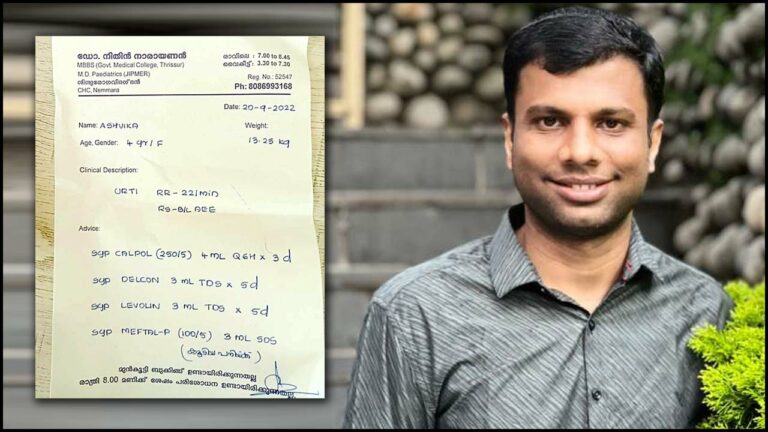 ഡോ. നിതിൻ നാരായണൻ
MBBS (Govt. Medical College, Thrissur)
M.D. Paediatrics (JIPMER)
ശിശുരോഗവിദഗ്ദ്ധൻ
CHC, Nemmara
രാവിലെ : 7.00 to 8.45
വൈകീട്ട് : 3.30 to 7.30
Reg. No.: 52547
Ph: 8086993168
Date: 20-9-2022
Name: ASHVIKA
Weight:
Age, Gender: 4 yr / F
13.25 kg
Clinical Description:
URTI RR - 22/min
RS - B/L AEE
Advice:
syp CALPOL (250/5) 4 ML Q6H x 3 d
syp DELCON 3 ML TDS x 5d
syp LEVOLIN 3 ML TDS x 5d
syp MEFTAL-P (100/5) 3 ML SOS
മുൻകൂട്ടി ബുക്കിങ്ങ് ഉണ്ടായിരിക്കുന്നതല്ല
രാത്രി 8.00 മണിക്ക് ശേഷം പരിശോധന ഉണ്ടായിരിക്കുന്നതല്ല.